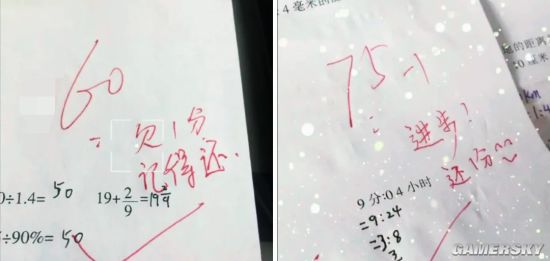 60
欠1分
记得还.
0÷1.4= 50
19+2/9=19 2/9
÷90%= 50
4 毫米的
75-1
进步!
还1分~~
的距离
0 厘米
km
9 分:0.4 小时
=9:24
=3:8
GAMERSKY